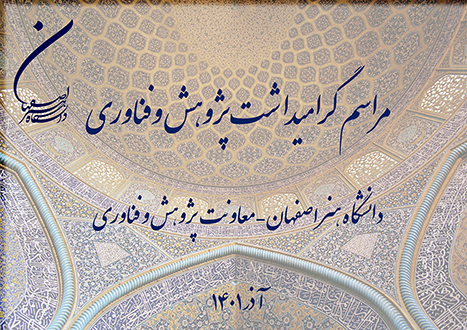 دانشگاه هنر اصفهان
مراسم گرامیداشت پژوهش و فناوری
دانشگاه هنر اصفهان - معاونت پژوهش و فناوری
آذر ۱۴۰۱